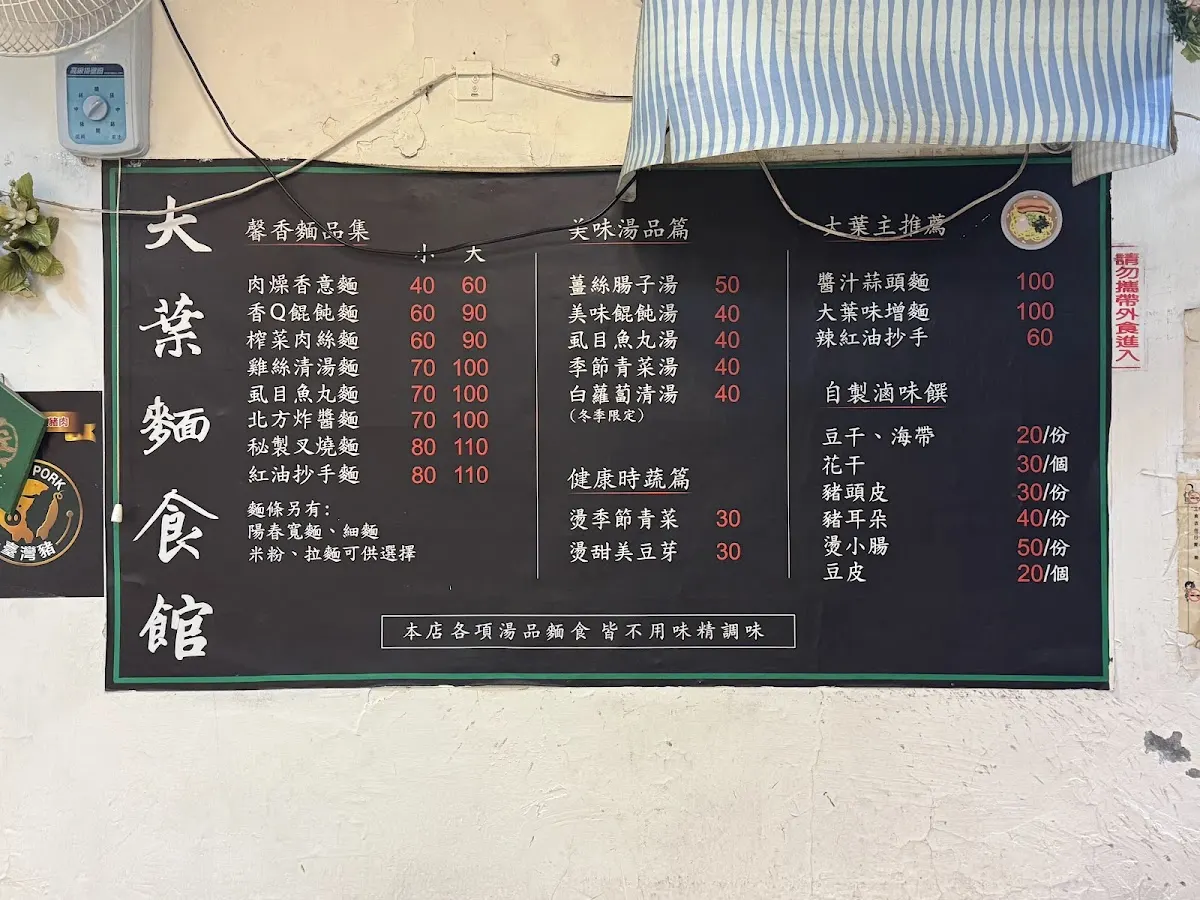 大葉麵食館
馨香麵品集
小 大
肉燥香意麵 40 60
香Q餛飩麵 60 90
榨菜肉絲麵 60 90
雞絲清湯麵 70 100
虱目魚丸麵 70 100
北方炸醬麵 70 100
秘製叉燒麵 80 110
紅油抄手麵 80 110
麵條另有:
陽春寬麵、細麵
米粉、拉麵可供選擇
美味湯品篇
薑絲腸子湯 50
美味餛飩湯 40
虱目魚丸湯 40
季節青菜湯 40
白蘿蔔清湯 40
(冬季限定)
健康時蔬篇
燙季節青菜 30
燙甜美豆芽 30
大葉主推薦
醬汁蒜頭麵 100
大葉味增麵 100
辣紅油抄手 60
自製滷味饌
豆干、海帶 20/份
花干 30/個
豬頭皮 30/份
豬耳朵 40/份
燙小腸 50/份
豆皮 20/個
本店各項湯品麵食 皆不用味精調味
請勿攜帶外食進入
豬肉
PORK
臺灣豬